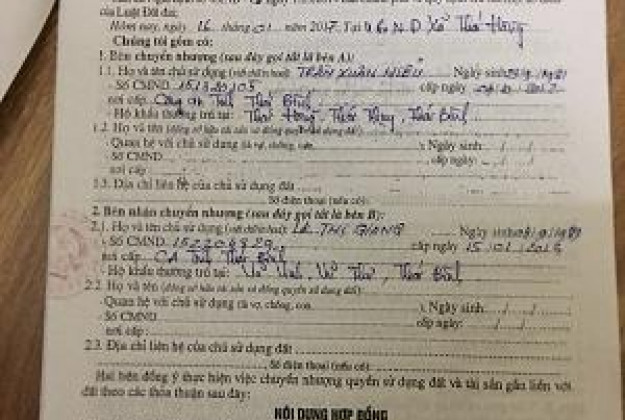 của Luật Đất đai;
Hôm nay, ngày 16 tháng 01 năm 2017. Tại UBND Xã Thái Hồng
Chúng tôi gồm có:
1. Bên chuyển nhượng (sau đây gọi tắt là bên A):
1.1. Họ và tên chủ sử dụng (viết chữ in hoa): TRẦN XUÂN HIỂU Ngày sinh
- Số CMND. 151320105 cấp ngày
nơi cấp. Công an Tỉnh Thái Bình
- Hộ khẩu thường trú tại: Thái Hồng, Thái Thụy, Thái Bình
1.2. Họ và tên (đồng sở hữu tài sản và đồng quyền sử dụng đất):
- Quan hệ với chủ sử dụng (là vợ, chồng, con): Ngày sinh:
- Số CMND cấp ngày:
nơi cấp
1.3. Địa chỉ liên hệ của chủ sử dụng đất
Số điện thoại (nếu có):
2. Bên nhận chuyển nhượng (sau đây gọi tắt là bên B):
2.1. Họ và tên chủ sử dụng (viết chữ in hoa): LÊ THỊ GIANG Ngày sinh
- Số CMND. cấp ngày 15/01/2016
nơi cấp CA Tỉnh Thái Bình
- Hộ khẩu thường trú tại: Vũ Vinh, Vũ Thư, Thái Bình
2.2. Họ và tên (đồng sở hữu tài sản và đồng quyền sử dụng đất):
- Quan hệ với chủ sử dụng (là vợ, chồng, con ): Ngày sinh: / /
- Số CMND cấp ngày: / /
nơi cấp:
2.3. Địa chỉ liên hệ của chủ sử dụng đất
Số điện thoại (nếu có):
Hai bên đồng ý thực hiện việc chuyển nhượng quyền sử dụng đất và tài sản gắn liền với
đất theo các thỏa thuận sau đây:
NỘI DUNG HỢP ĐỒNG